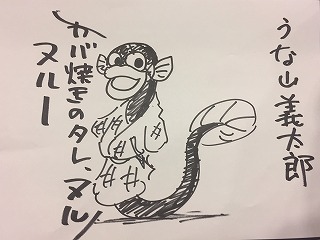 うな山義太郎
カバ焼きのタレ、ヌル
ヌルー